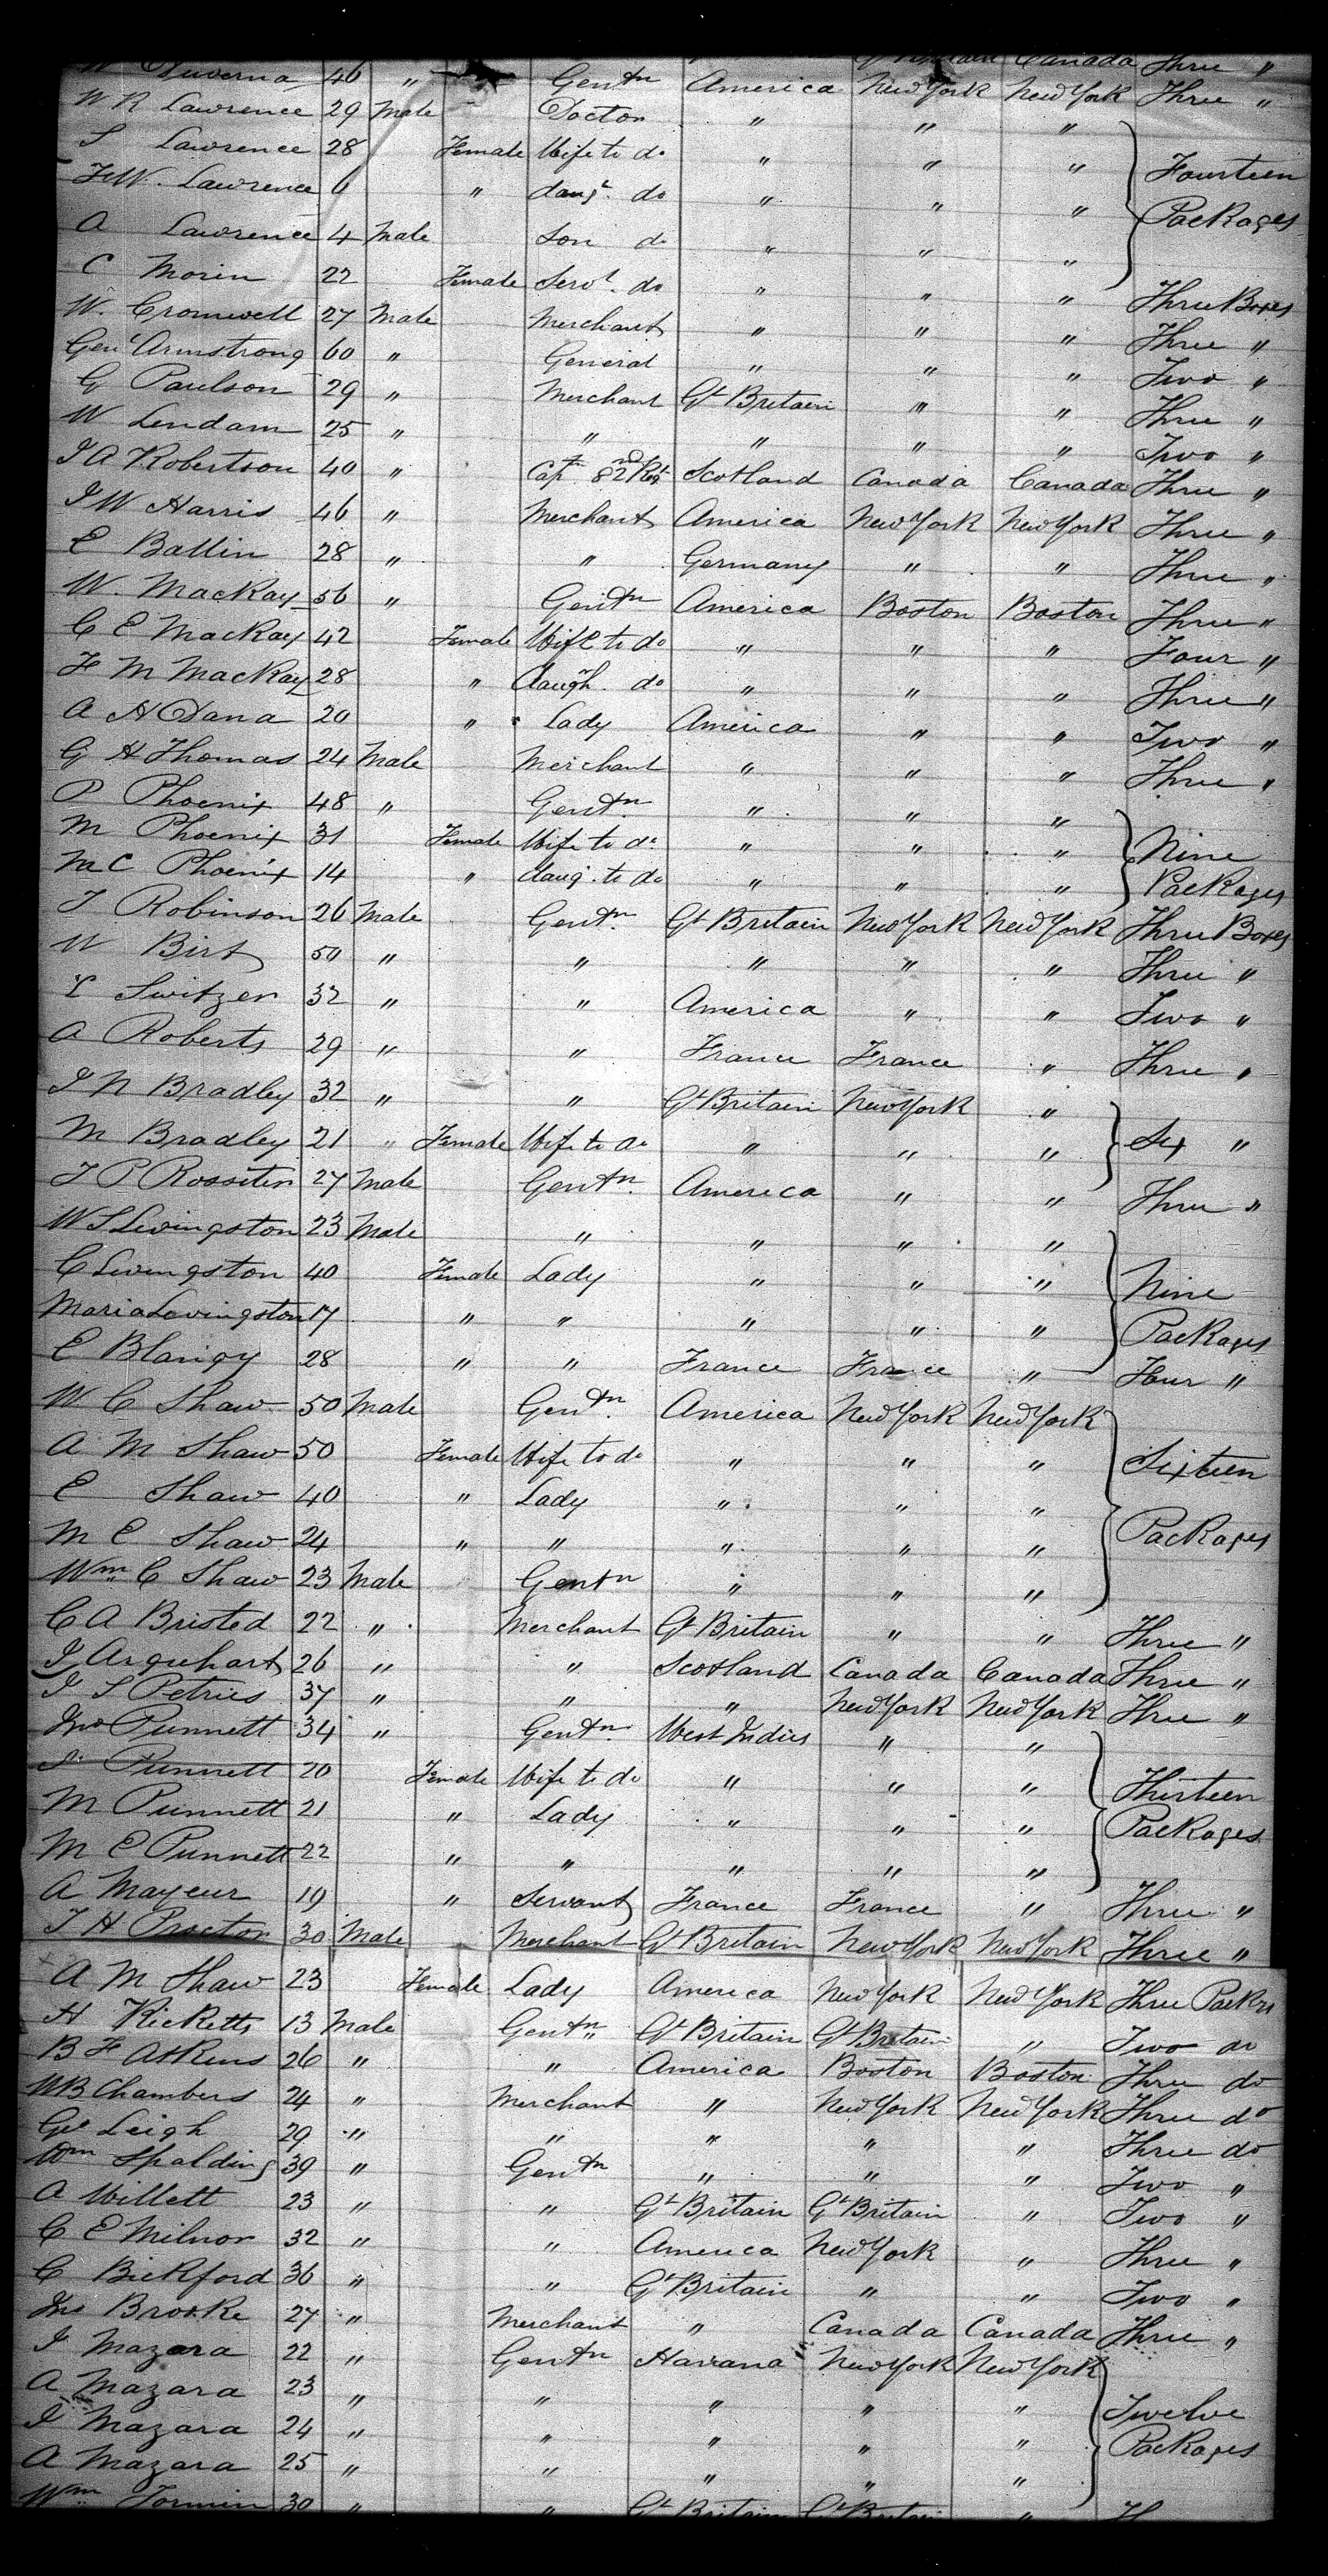 W Duverna 46 " Gentn America New York New York Three "
W R Lawrence 29 Male Doctor " " "
S Lawrence 28 Female Wife to do " " " Fourteen
F W. Lawrence 6 " daugt. do " " " Packages
A Lawrence 4 Male Son do " " "
C Morin 22 Female Servt. do " " " Three Boxes
W. Cromwell 27 Male Merchant " " " Three "
Genl Armstrong 60 " General " " " Two "
G Paulson 29 " Merchant Gt Britain " " Three "
W Lendam 25 " " " " " Two "
J A Robertson 40 " Capt 82nd Regt Scotland Canada Canada Three "
J W Harris 46 " Merchant America New York New York Three "
E Ballin 28 " " Germany " " Three "
W. MacKay 56 " Gentn America Boston Boston Three "
C E MacKay 42 Female Wife to do " " " Four "
F M MacKay 28 " daugh. do " " " Three "
A H Dana 20 " Lady America " " Two "
G H Thomas 24 Male Merchant " " " Three "
P Phoenix 48 " Gentn. " " "
M Phoenix 31 Female Wife to do " " " Nine
M C Phoenix 14 " daug. to do " " " Packages
T Robinson 26 Male Gentn. Gt Britain New York New York Three Boxes
W Birt 50 " " " " " Three "
L Switzer 32 " " America " " Two "
A Roberts 29 " " France France " Three "
J N Bradley 32 " " Gt Britain New York "
M Bradley 21 " Female Wife to do " " " Six "
T P Rossiter 27 Male Gentn. America " " Three "
W S Livingston 23 Male " " " "
C Livingston 40 Female Lady " " " Nine
Maria Livingston 17 " " " " " Packages
E Blangy 28 " " France France " Four "
W C Shaw 50 Male Gentn. America New York New York
A M Shaw 50 Female Wife to do " " " Sixteen
E Shaw 40 " Lady " " "
M E Shaw 24 " " " " " Packages
Wm C Shaw 23 Male Gentn " " "
C A Bristed 22 " Merchant Gt Britain " " Three "
J Arquhart 26 " " Scotland Canada Canada Three "
J S Petries 37 " " " New York New York Three "
Jno Punnett 34 " Gentn. West Indies " "
S Punnett 20 Female Wife to do " " " Thirteen
M Punnett 21 " Lady " " " Packages
M E Punnett 22 " " " " "
A Mayeur 19 " Servant France France " Three "
T H Proctor 30 Male Merchant Gt Britain New York New York Three "
A M Shaw 23 Female Lady America New York New York Three Packs
H Ricketts 13 Male Gentn Gt Britain Gt Britain " Two do
B F Atkens 26 " " America Boston Boston Three do
W B Chambers 24 " Merchant " New York New York Three do
Geo Leigh 29 " " " " " Three do
Wm Spalding 39 " Gentn " " " Two "
A Willett 23 " " Gt Britain Gt Britain " Two "
C E Milnor 32 " " America New York " Three "
C Bickford 36 " " Gt Britain " " Two "
Jno Brooke 27 " Merchant " Canada Canada Three "
J Mazara 22 " Gentn Havana New York New York
A Mazara 23 " " " " " Twelve
J Mazara 24 " " " " " Packages
A Mazara 25 " " " " "
Wm 30 " " Gt Britain Gt Britain "